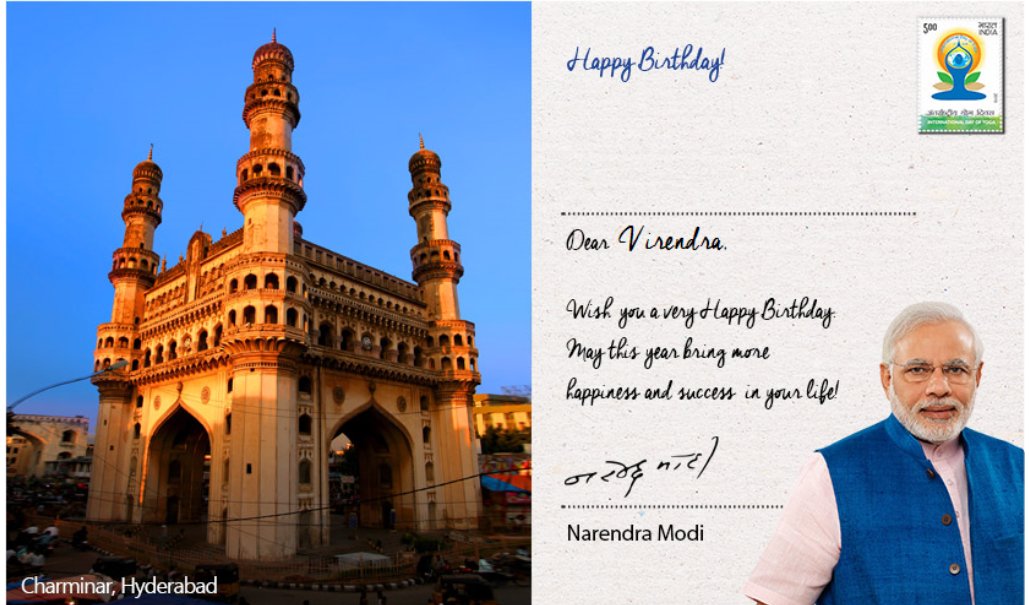 Happy Birthday!
5.00 भारत
INDIA
अंतर्राष्ट्रीय योग दिवस
INTERNATIONAL DAY OF YOGA
Dear Virendra,
Wish you a very Happy Birthday.
May this year bring more
happiness and success in your life!
नरेन्द्र मोदी
Narendra Modi
Charminar, Hyderabad